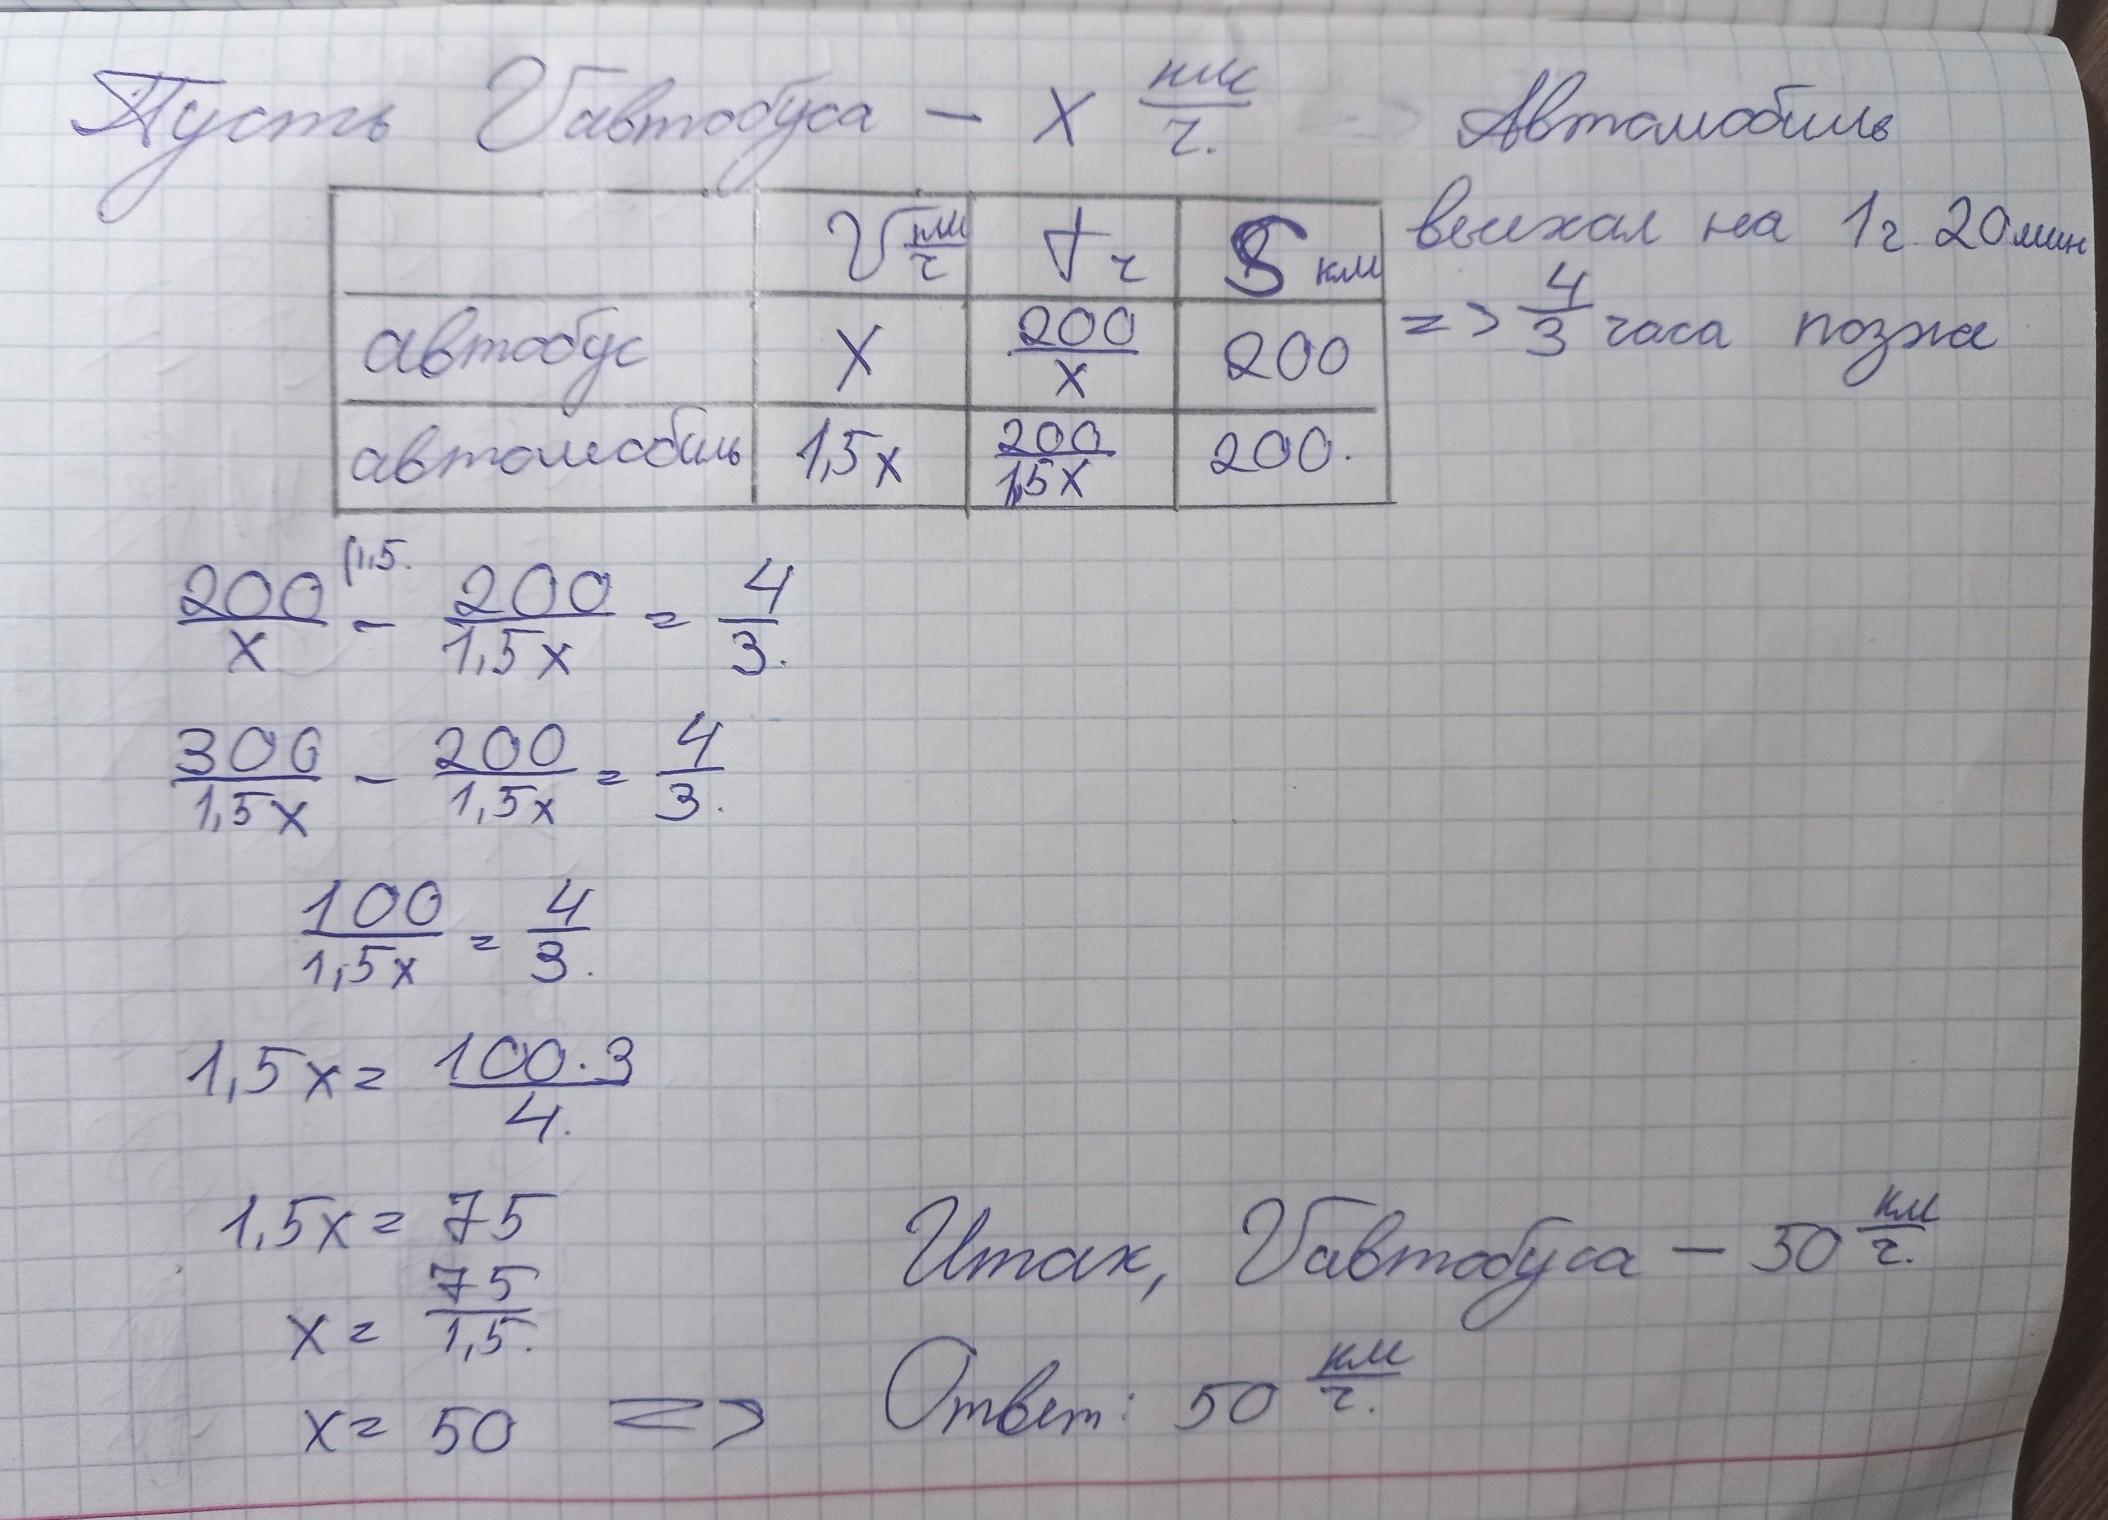 Пусть Vавтобуса – x км/ч.
Автомобиль
выехал на 1ч. 20мин
=> 4/3 часа позжа
V км/ч t ч S км
автобус x 200/x 200
автомобиль 1,5x 200/1,5x 200.
200/x (1,5. – 200/1,5x = 4/3.
300/1,5x – 200/1,5x = 4/3.
100/1,5x = 4/3.
1,5x = 100·3/4.
1,5x = 75
x = 75/1,5.
x = 50 =>
Итак, Vавтобуса – 50 км/ч.
Ответ: 50 км/ч.